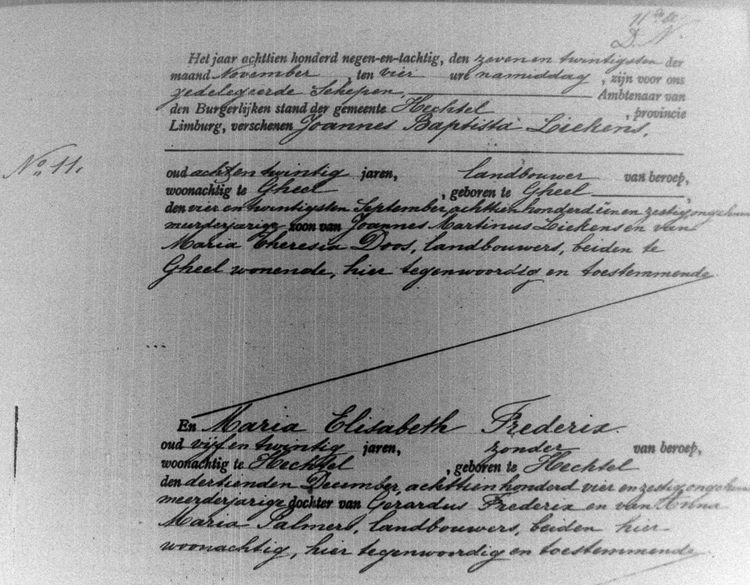 11de
D. N.
Het jaar achttien honderd negen-en-tachtig, den zeven en twintigsten der
maand November, ten vier ure namiddag, zijn voor ons
gedelegeerde Schepen, Ambtenaar van
den Burgerlijken stand der gemeente Hechtel, provincie
Limburg, verschenen Joannes Baptista Liekens,
No 11.
oud acht en twintig jaren, landbouwer van beroep,
woonachtig te Gheel, geboren te Gheel
den vier en twintigsten September achttien honderd één en zestig
meerderjarige zoon van Joannes Martinus Liekens en van
Maria Theresia Doos, landbouwers, beiden te
Gheel wonende, hier tegenwoordig en toestemmende
En Maria Elisabeth Frederix.
oud vijf en twintig jaren, zonder van beroep,
woonachtig te Hechtel, geboren te Hechtel
den dertienden December, achttien honderd vier en zestig
meerderjarige dochter van Gerardus Frederix en van Anna
Maria Palmers, landbouwers, beiden hier
woonachtig, hier tegenwoordig en toestemmende